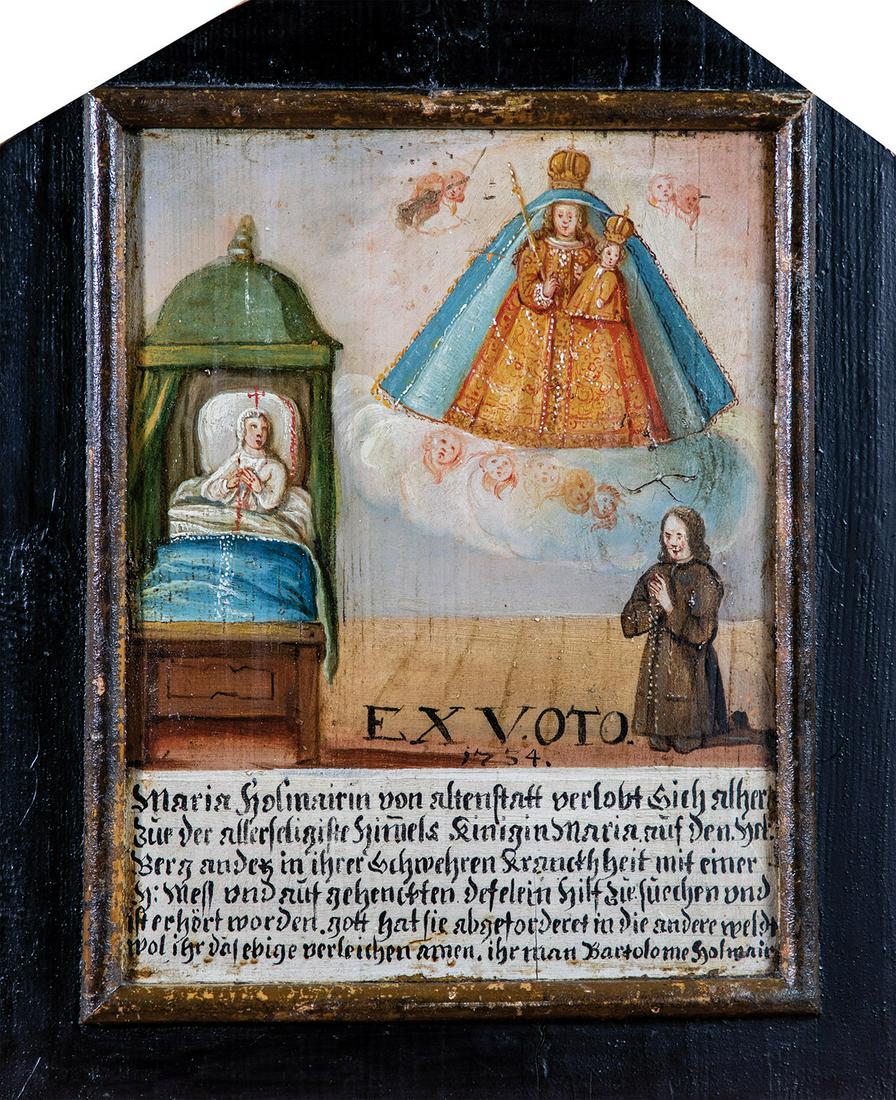 EX V.OTO.
1754.
Maria Holmairin von altenstatt verlobt Sich alher
Zue der allerseligiste Himels Kinigin Maria auf den Hel
Berg andex in ihrer Schwehren Kranckhheit mit einer
H: Mess vnd auf gehenckten defelein Hilf Zue suechen vnd
ist erhört worden. gott hat sie abgeforderet in die andere weldt
wol ihr das ebige verleichen amen. ihr man Bartolome Holmair